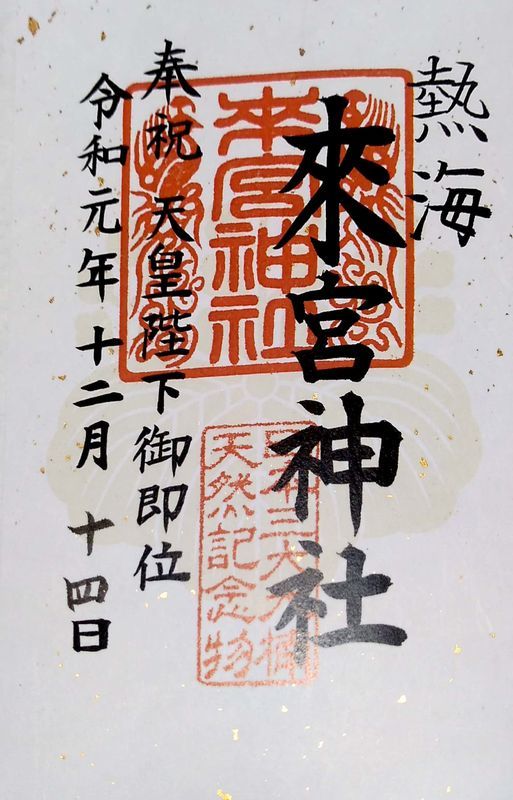 熱海
來宮神社
奉祝 天皇陛下御即位
令和元年十二月 十四日
來宮神社
天然記念物